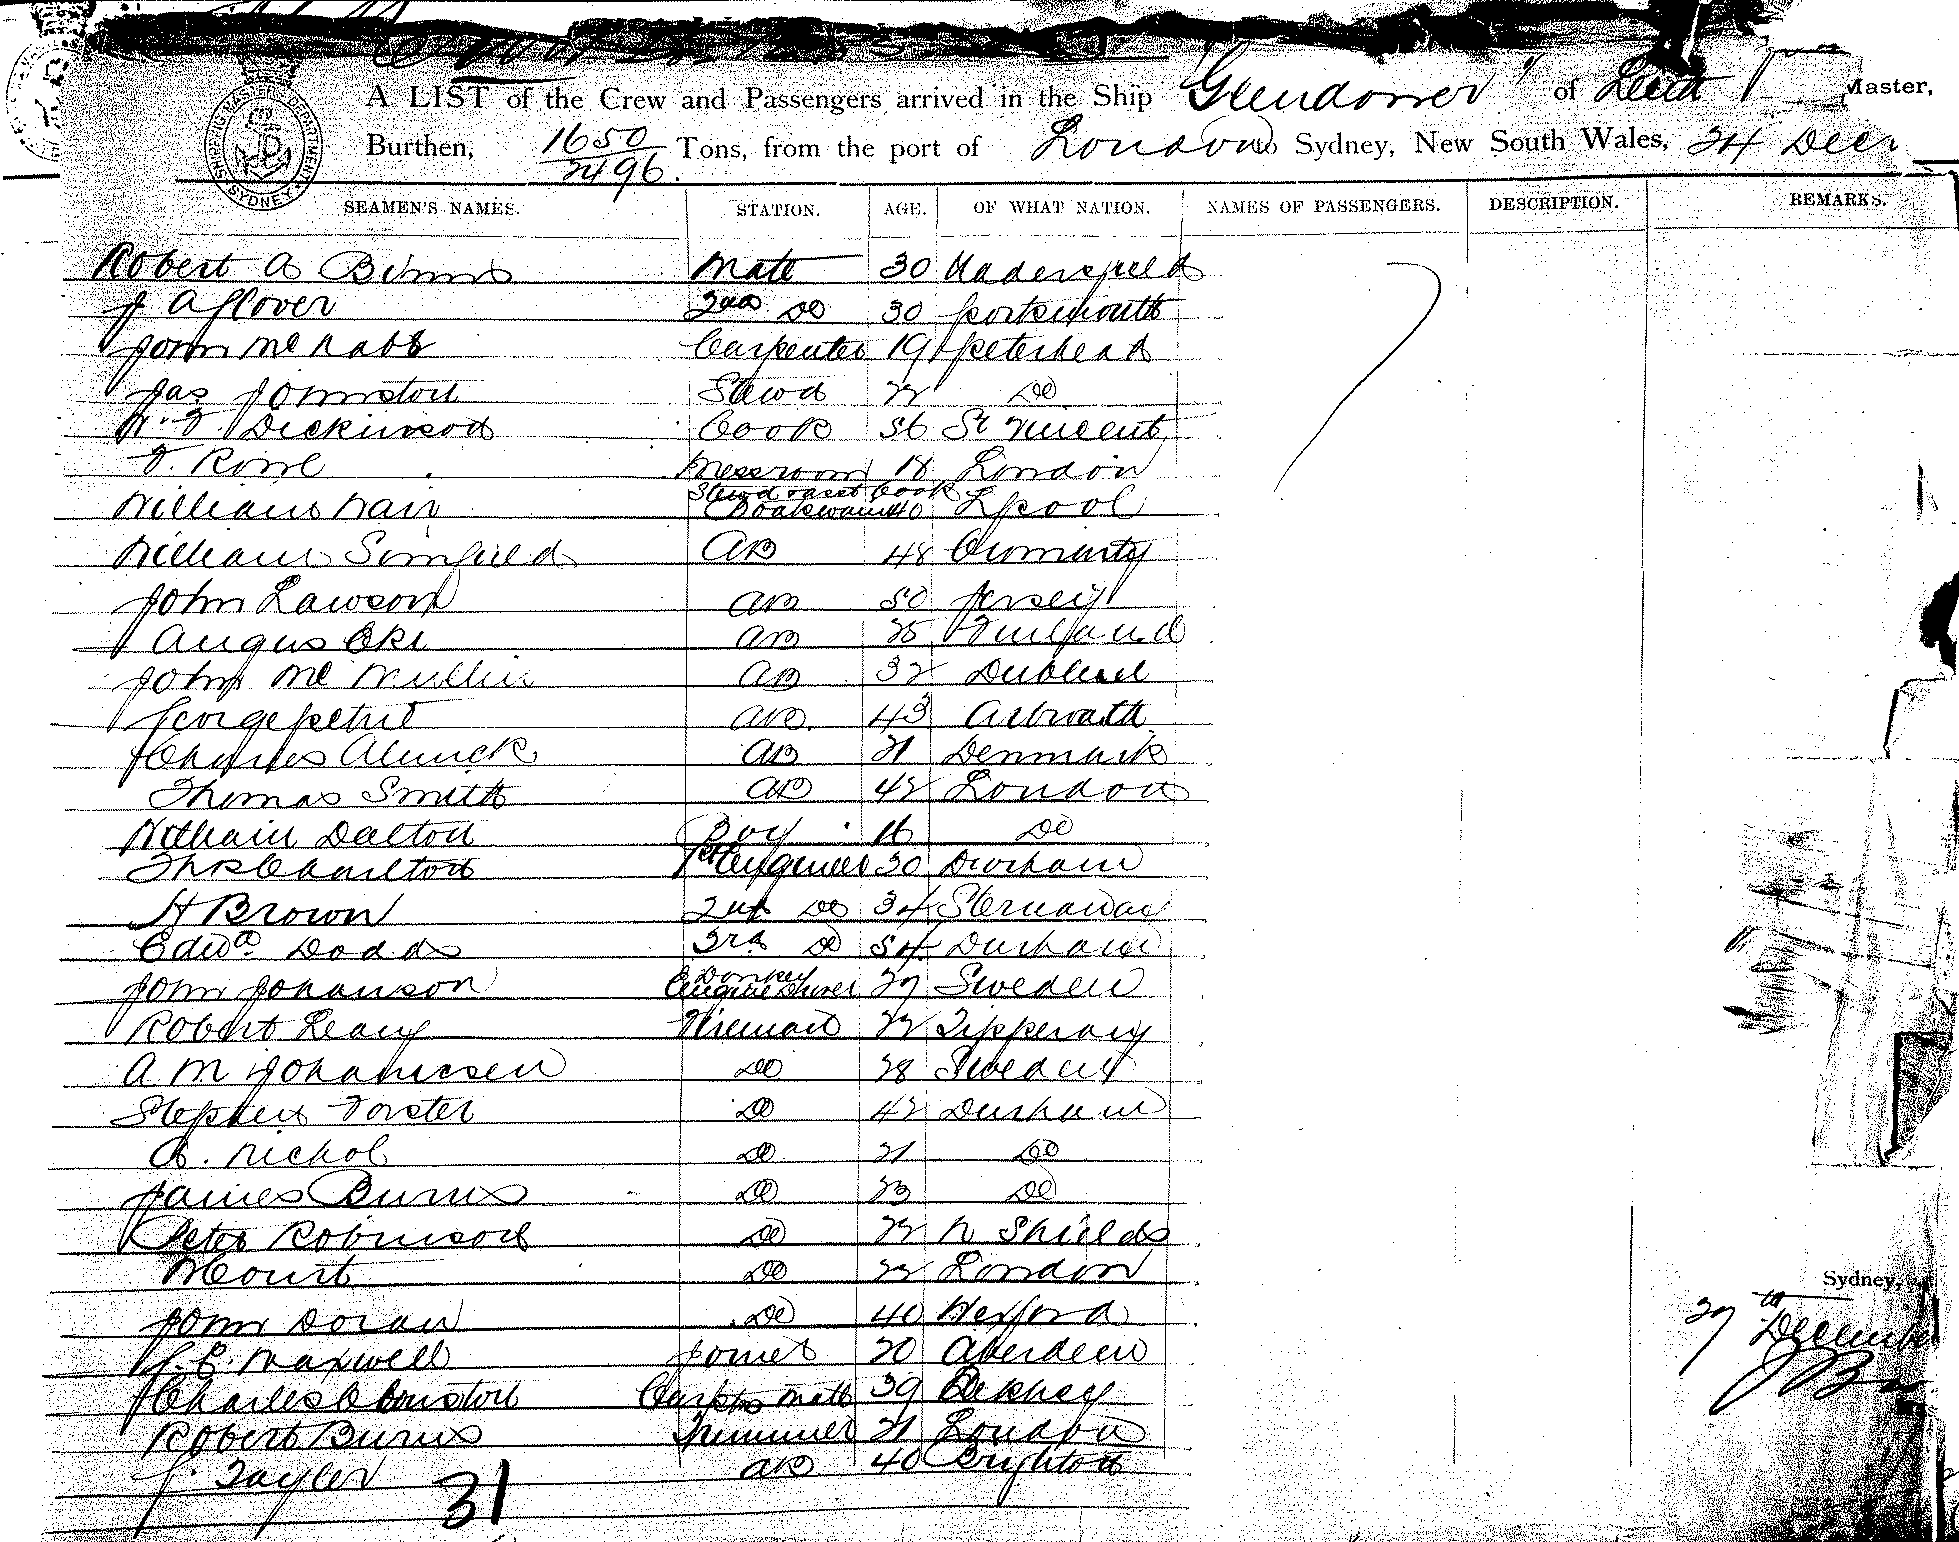 A LIST of the Crew and Passengers arrived in the Ship "Glendower" of Leith Master,
Burthen, 1650/2496 Tons, from the port of London to Sydney, New South Wales, 24 Decr
SHIPPING MASTER'S DEPARTMENT SYDNEY
SEAMEN'S NAMES. STATION. AGE. OF WHAT NATION. NAMES OF PASSENGERS. DESCRIPTION. REMARKS.
Robert A Binns Mate 30 Hudersfield
J A Glover 2nd Do 30 Portsmouth
John McNabb Carpenter 19 Peterhead
Jas Johnston Stewd 22 Do
Dickinson Cook 36 St Vincent
Messroom 18 London
Stewd & asst Cook
William Nair Boatswain 40 Lpool
William Simfield AB 48 Cromarty
John Lawson AB 50 Jersey
Angus Eke AB 25 Finland
John McMullin AB 32 Dublin
George Petrie AB 43 Arbroath
Charles AB 21 Denmark
Thomas Smith AB 42 London
William Dalton Boy 16 Do
Thos Charlton 1st Engineer 30 Durham
H Brown 2nd Do 34 Stornoway
Edwd Dodds 3rd Do 54 Durham
John Johanson Donkey Engine Driver 27 Sweden
Robert Leary Fireman 22 Tipperary
A M Johannesen Do 28 Sweden
Stephen Forster Do 42 Durham
A. Nichol Do 21 Do
James Burns Do 23 Do
Peter Robinson Do 22 N Shields
W Court Do 22 London
John Doran Do 40 Wexford
Maxwell Joiner 20 Aberdeen
Charles Clouston Carptrs Mate 39 Orkney
Robert Burns Trimmer 21 London
J. Tayler AB 40 Brighton
31
Sydney,
27th December